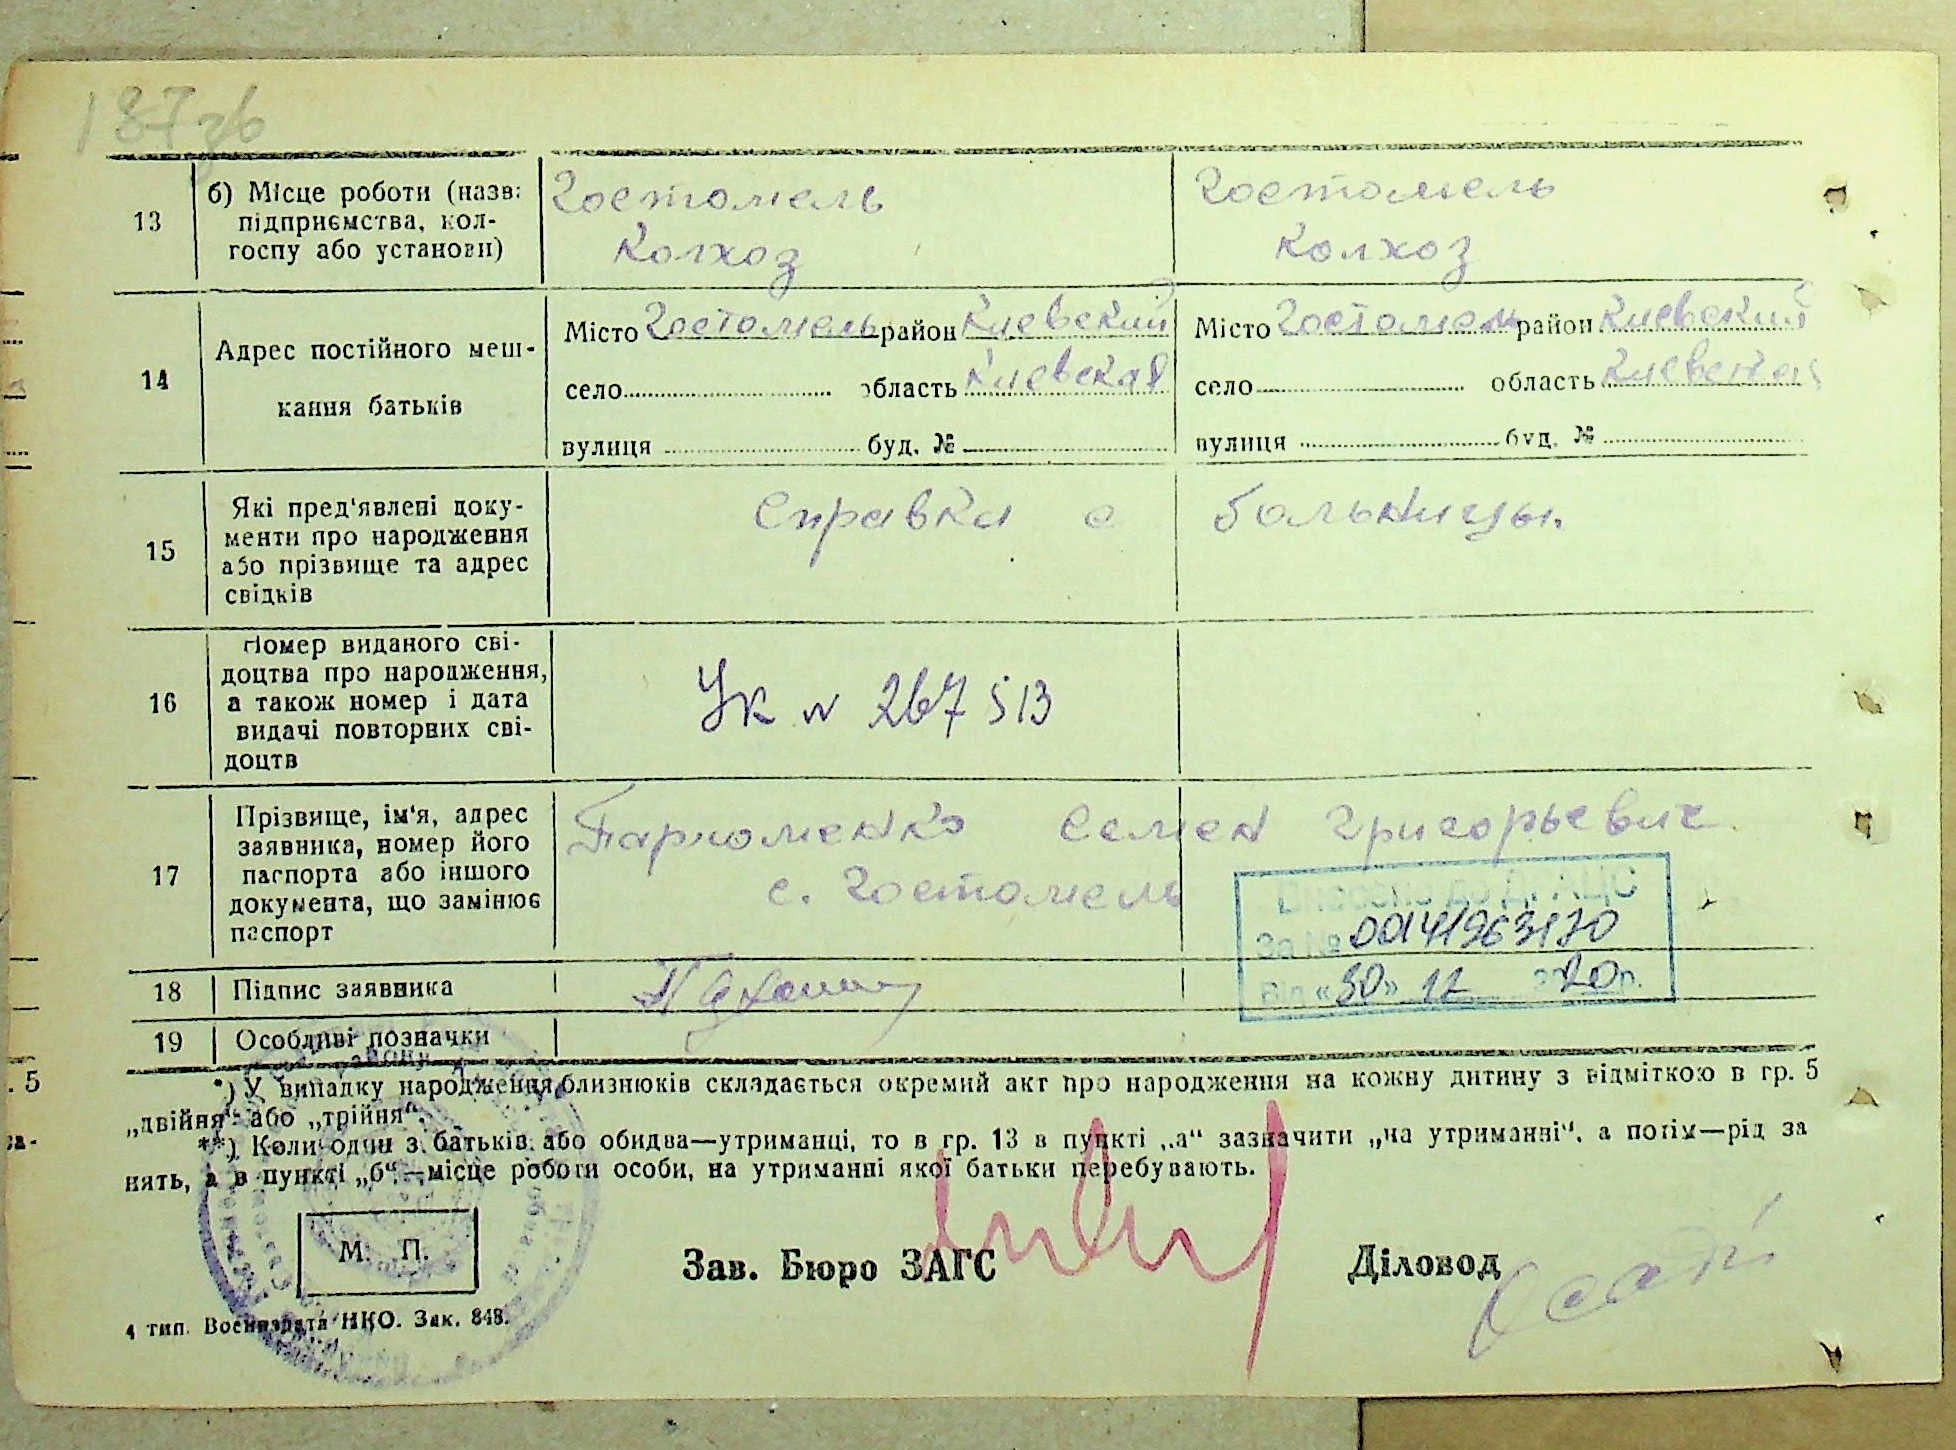 187 зв
13
б) Місце роботи (назва
підприємства, кол-
госпу або установи)
Гостомель
Колхоз
Гостомель
колхоз
14
Адрес постійного меш-
кання батьків
Місто Гостомель район Киевский
село область Киевская
вулиця буд. №
Місто Гостомель район Киевский
село область Киевская
вулиця буд. №
15
Які пред'явлені доку-
менти про народження
або прізвище та адрес
свідків
Справка с больницы.
16
Номер виданого сві-
доцтва про народження,
а також номер і дата
видачі повторних сві-
доцтв
Ук № 267513
17
Прізвище, ім'я, адрес
заявника, номер його
паспорта або іншого
документа, що замінює
паспорт
Пархоменко Семен Григорьевич
с. Гостомель
Внесено до ДРАЦС
За № 00141963170
Від «30» 12 20 р.
18
Підпис заявника
19
Особливі позначки
. 5
*) У випадку народження близнюків складається окремий акт про народження на кожну дитину з відміткою в гр. 5
„двійня“ або „трійня“.
**) Коли один з батьків або обидва—утриманці, то в гр. 13 в пункті „а“ зазначити „на утриманні“, а потім—рід за
нять, а в пункті „б“—місце роботи особи, на утриманні якої батьки перебувають.
М. П.
Зав. Бюро ЗАГС
Діловод
4 тип. Воениздата НКО. Зак. 848.